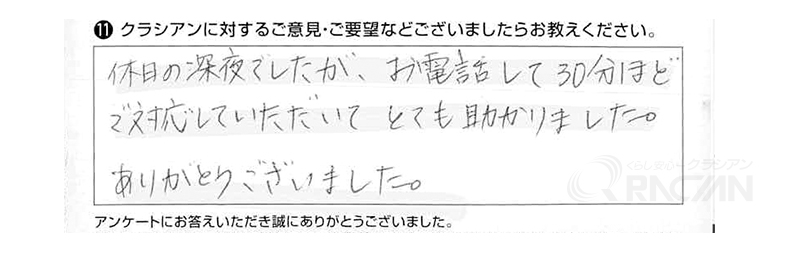 ⓫ クラシアンに対するご意見・ご要望などございましたらお教えください。
休日の深夜でしたが、お電話して30分ほど
で対応していただいて とても助かりました。
ありがとうございました。
くらし安心 クラシアン
QRACIAN
アンケートにお答えいただき誠にありがとうございました。